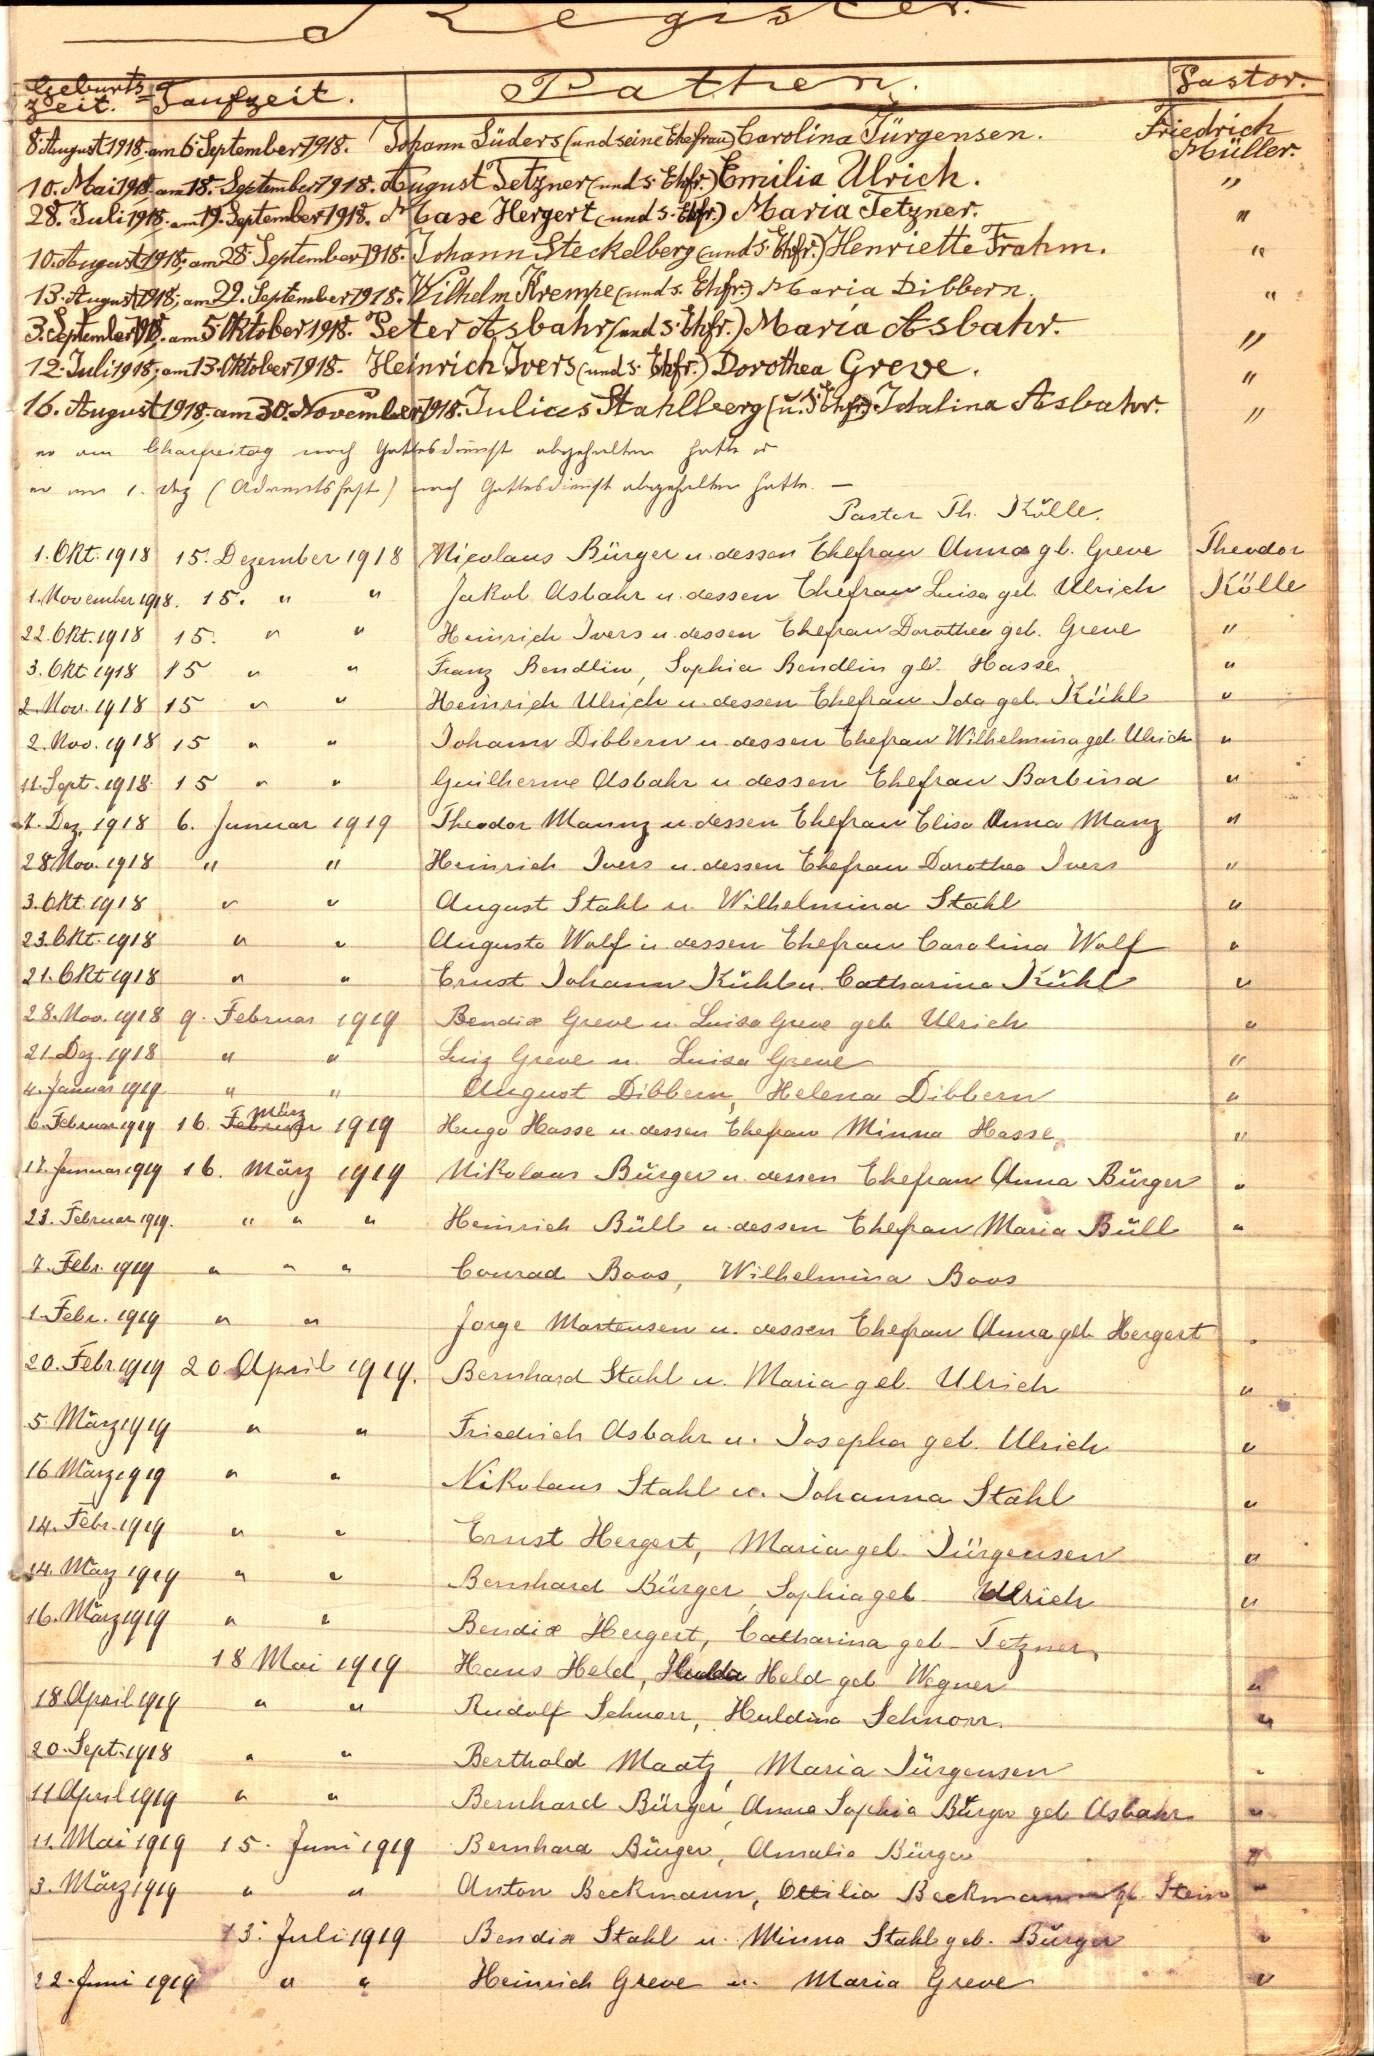 Register.
Geburts Taufzeit. Pathen. Pastor.
zeit.
8. August 1918. am 6. September 1918. Johann Lüders (und seine Ehefrau) Carolina Jürgensen. Friedrich
Müller.
10. Mai 1918. am 18. September 1918. August Tetzner (und s. Ehfr.) Emilia Ulrich. "
28. Juli 1918. am 19. September 1918. Hergert (und s. Ehfr.) Maria Tetzner. "
10. August 1918; am 28. September 1918. Johann Steckelberg (und s. Ehfr.) Henriette Frahm. "
13. August 1918; am 29. September 1918. Wilhelm Krempe (und s. Ehfr.) Maria Dibbern. "
3. September 1918. am 5. Oktober 1918. Peter Asbahr (und s. Ehfr.) Maria Asbahr. "
12. Juli 1918; am 13. Oktober 1918. Heinrich Ivers (und s. Ehfr.) Dorothea Greve. "
16. August 1918; am 30. November 1918. Julius Stahlberg (u. s. Ehfr.) Idalina Asbahr. "
am Charfreitag noch Gottesdienst abgehalten hatte
1. Dez (Adventsfest) noch Gottesdienst abgehalten hatte. —
Pastor Th. Kölle.
1. Okt. 1918 15. Dezember 1918 Nicolaus Bürger u. dessen Ehefrau Anna gb. Greve Theodor
1. November 1918. 15. " " Jakob Asbahr u. dessen Ehefrau Luisa geb. Ulrich Kölle
22. Okt. 1918 15. " " Heinrich Ivers u. dessen Ehefrau Dorothea geb. Greve "
3. Okt 1918 15 " " Franz Bendlin, Sophia Bendlin gb. Hasse "
2. Nov. 1918 15 " " Heinrich Ulrich u. dessen Ehefrau Ida geb. Kühl "
2. Nov. 1918 15 " " Johann Dibbern u. dessen Ehefrau Wilhelmina geb. Ulrich "
11. Sept. 1918 15 " " Guilherme Asbahr u. dessen Ehefrau Barbina "
7. Dez. 1918 6. Januar 1919 Theodor Mannz u. dessen Ehefrau Elisa Anna Manz "
28 Nov. 1918 " " Heinrich Ivers u. dessen Ehefrau Dorothea Ivers "
3. Okt. 1918 " " August Stahl u. Wilhelmina Stahl "
23. Okt. 1918 " " Augusto Wolf u. dessen Ehefrau Carolina Wolf "
21. Okt 1918 " " Ernst Johann Kühl u. Catharina Kühl "
28. Nov. 1918 9. Februar 1919 Bendix Greve u. Luisa Greve geb Ulrich "
21. Dez. 1918 " " Luiz Greve u. Luisa Greve "
4. Januar 1919 " " August Dibbern, Helena Dibbern "
März
6. Februar 1919 16. Februar 1919 Hugo Hasse u. dessen Ehefrau Minna Hasse "
17. Januar 1919 16. März 1919 Nikolaus Bürger u. dessen Ehefrau Anna Bürger "
23. Februar 1919. " " " Heinrich Büll u. dessen Ehefrau Maria Büll "
7. Febr. 1919 " " " Conrad Boos, Wilhelmina Boos
1. Febr. 1919 " " Jorge Martensen u. dessen Ehefrau Anna geb. Hergert "
20. Febr. 1919 20. April 1919. Bernhard Stahl u. Maria geb. Ulrich "
5. März 1919 " " Friedrich Asbahr u. Josepha geb. Ulrich "
16 März 1919 " " Nikolaus Stahl u. Johanna Stahl "
14. Febr. 1919 " " Ernst Hergert, Maria geb. Jürgensen "
14. März 1919 " " Bernhard Bürger, Sophia geb. Ulrich "
16. März 1919 " " Bendix Hergert, Catharina geb. Tetzner,
18 Mai 1919 Hans Held, Hulda Held geb Wegner "
18. April 1919 " " Rudolf Schnorr, Huldina Schnorr. "
20. Sept. 1918 " " Berthold Maatz, Maria Jürgensen "
11 April 1919 " " Bernhard Bürger, Anna Sophia Bürger geb Asbahr "
11. Mai 1919 15. Juni 1919 Bernhard Bürger, Amalia Bürger "
3. März 1919 " " Anton Beckmann, Ottilia Beckmann gb. Stein "
13. Juli 1919 Bendix Stahl u. Minna Stahl geb. Bürger "
22. Juni 1919 " " Heinrich Greve u. Maria Greve "